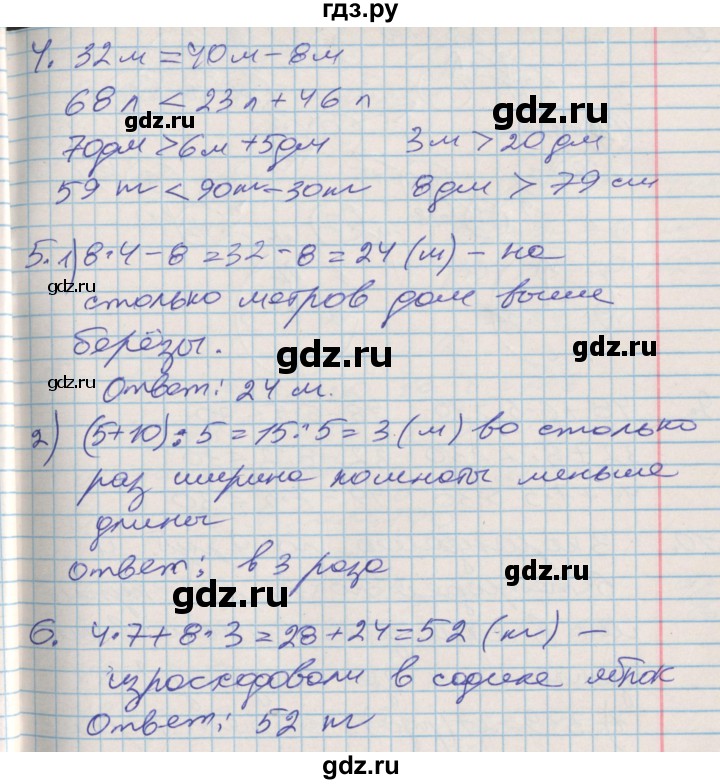 гдз.ру
4. 32 м = 40 м - 8 м
68 л < 23 л + 46 л
gdz.ru
gdz.ru
70 дм > 6 м + 5 дм 3 м > 20 дм
gdz.ru
59 кг < 90 кг - 30 кг 8 дм > 79 см
5. 1) 8·4 - 8 = 32 - 8 = 24 (м) - на
gdz.ru
gdz.ru
столько метров дом выше
берёзы.
gdz.ru
gdz.ru
gdz.ru
Ответ: 24 м.
2) (5+10) : 5 = 15 : 5 = 3 (м) во столько
раз ширина комнаты меньше
длины
Ответ: в 3 раза
gdz.ru
gdz.ru
6. 4·7 + 8·3 = 28 + 24 = 52 (кг) -
израсходовали в садике яблок
gdz.ru
gdz.ru
Ответ: 52 кг